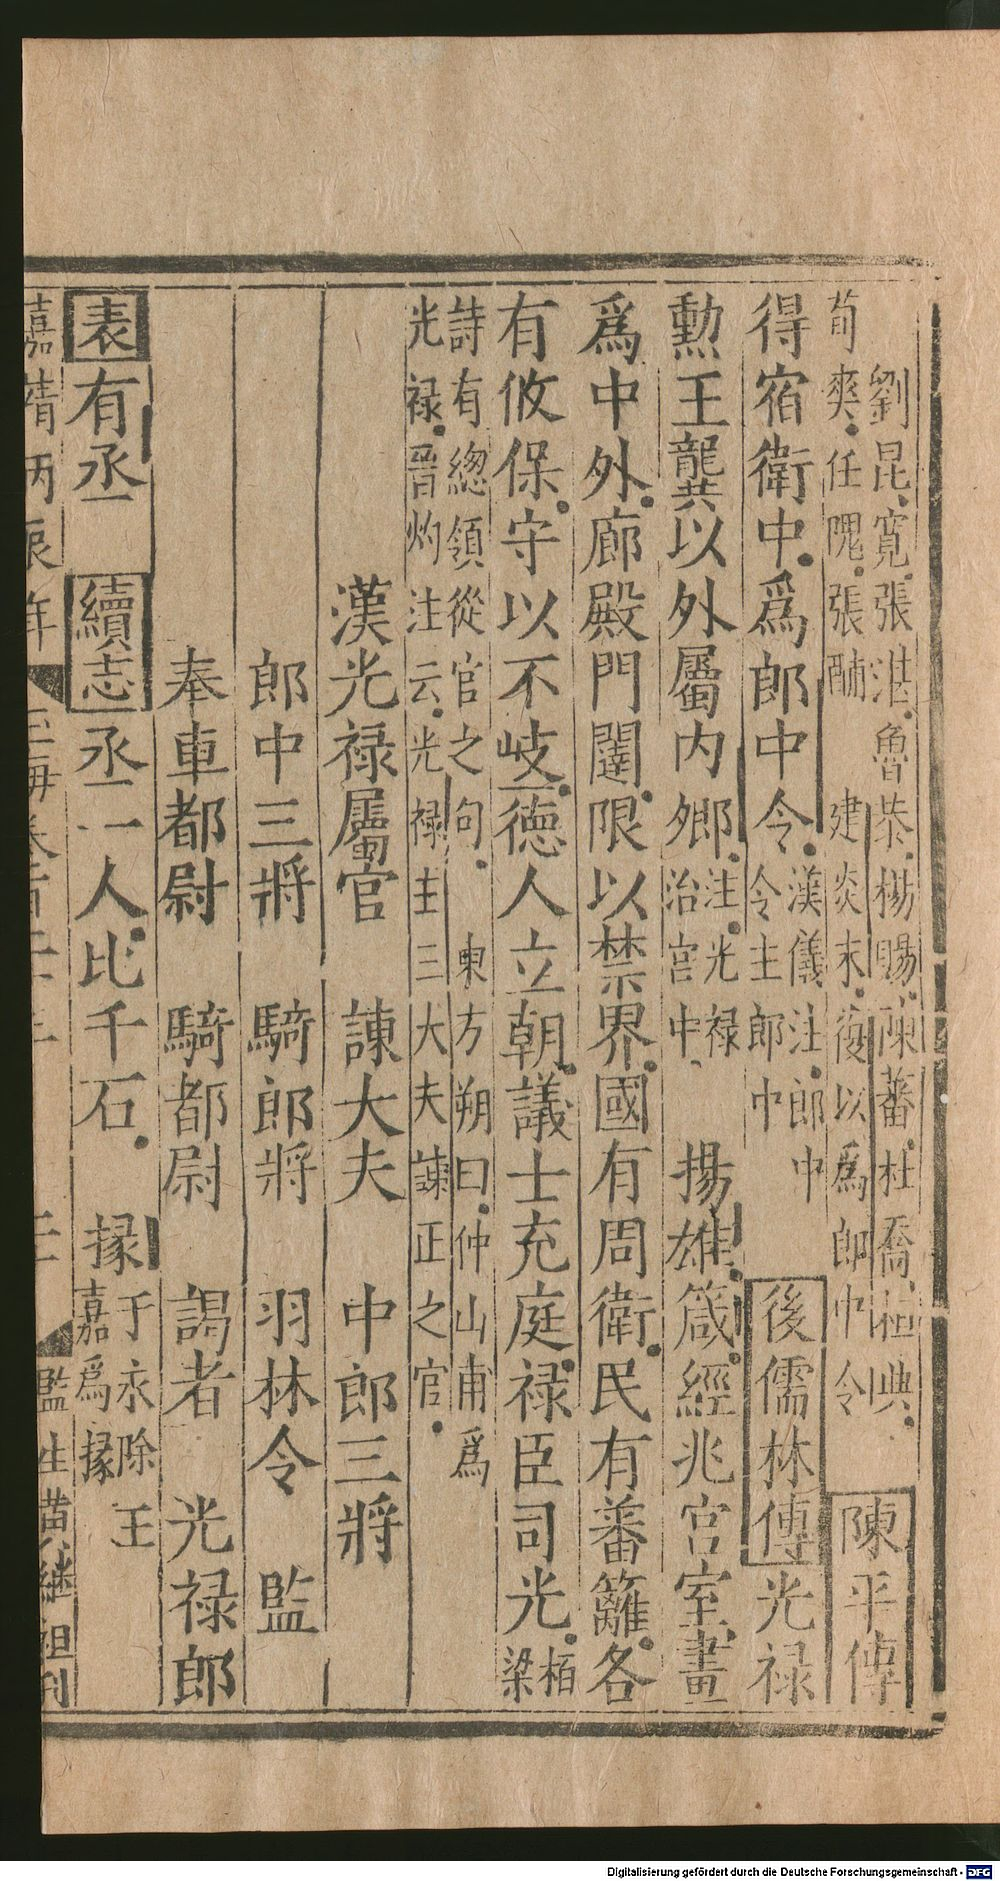 劉昆寬張湛魯恭楊賜陳蕃杜喬桓典
荀爽任隗張酺 建炎末復以爲郎中令
陳平傳
得宿衛中爲郎中令
漢儀注郎中
令主郎中
後儒林傳光禄
勳王龔以外屬内卿
注光禄
治宮中
揚雄箴經兆宫室畫
爲中外廊殿門闥限以禁界國有周衛民有番籬各
有攸保守以不岐德人立朝議士充庭禄臣司光
栢
梁
詩有緫領從官之句東方朔曰仲山甫爲
光禄晉灼注云光禄主三大夫諫正之官
漢光禄屬官 諫大夫 中郎三將
郎中三將 騎郎將 羽林令 監
奉車都尉 騎都尉 謁者 光禄郎
表有丞 續志丞一人比千石 掾
于永除王
嘉爲掾
嘉靖丙辰年 玉海卷 監生黄継祖刊
Digitalisierung gefördert durch die Deutsche Forschungsgemeinschaft - DFG